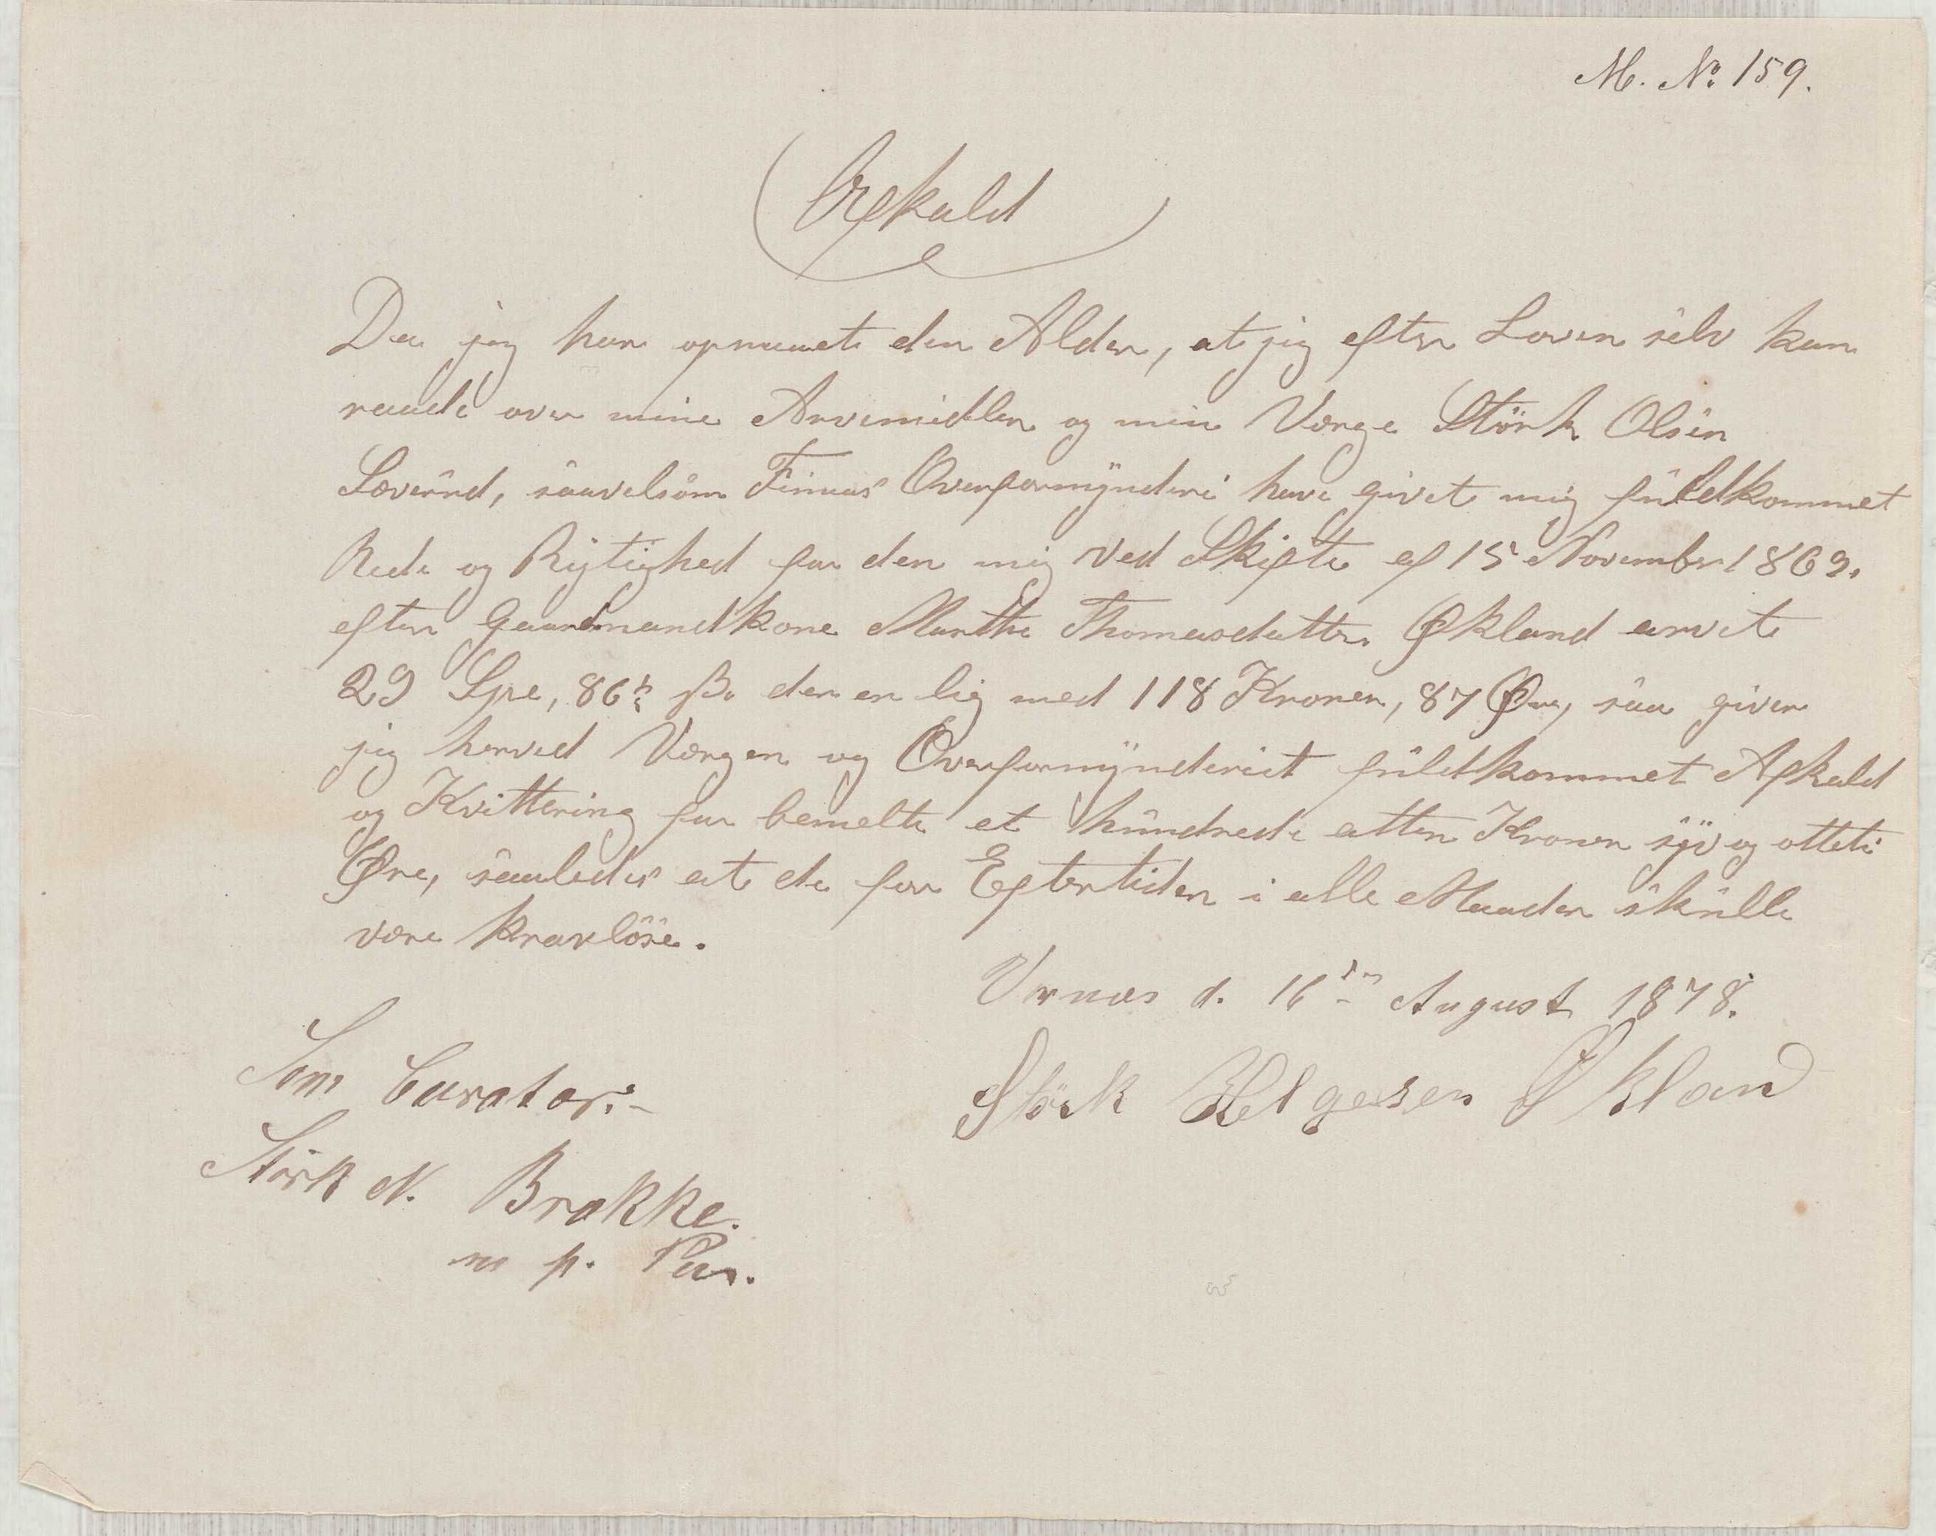 M. No. 159.
Afkald
Da jeg har opnaaet den Alder, at jeg efter Loven selv kan
raade over mine Arvemidler og min Værge Störk Olsen
Løvernd, saavelsom Finnaas Overformynderi have givet mig fuldkommet
Rede og Rigtighed for den mig ved Skifte af 15 November 1869.
efter Gaardmandkone Marthe Thomasdatter Økland arvet
29 Spe, 86½ sk. der er lig med 118 Kroner, 87 Øre, saa giver
jeg herved Værgen og Overformynderiet fuldkommet Afkald
og Kvittering for bemelte et hundrede atten Kroner syv og otteti
Øre, saaledes at de for Eftertiden i alle Maader skulle
være kravløse.
Vernæs d. 16de August 1878.
Störk Helgesen Økland
Som Curator.-
Störk N. Brakke.
m p. Pen.